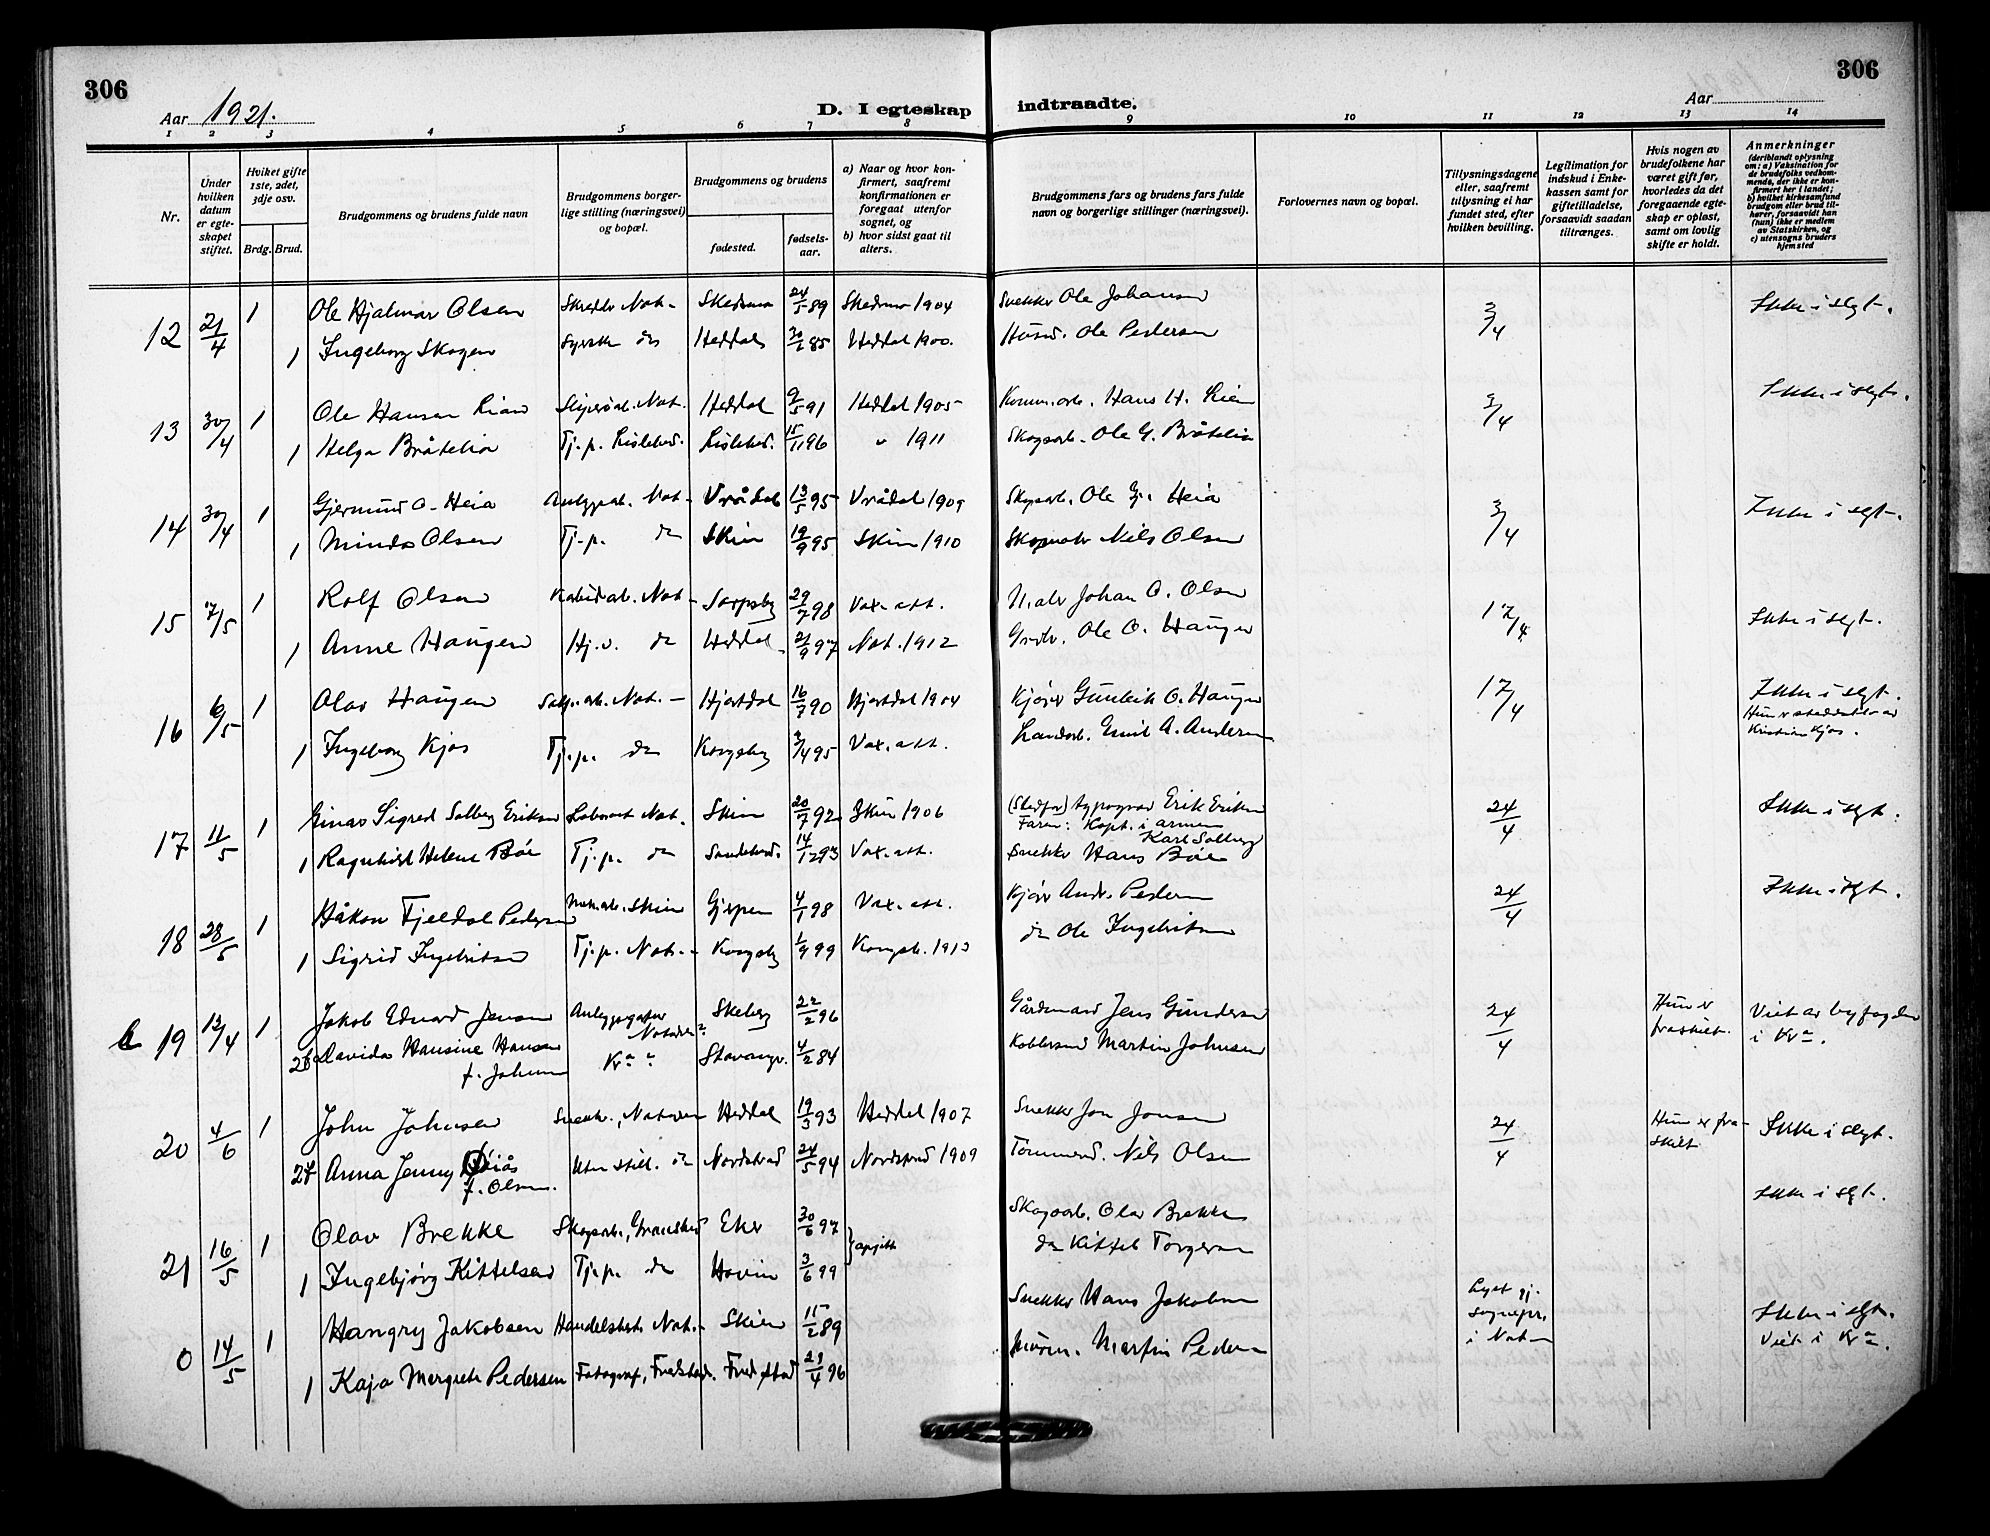 306
306
Aar 1921.
D. I egteskap indtraadte.
Aar
1 2 3 4 5 6 7 8 9 10 11 12 13 14
Nr.
Under hvilken datum er egteskapet stiftet.
Hviket gifte 1ste, 2det, 3dje osv.
Brdg. Brud.
Brudgommens og brudens fulde navn
Brudgommens borgerlige stilling (næringsvei) og bopæl.
Brudgommens og brudens
fødested.
fødselsaar.
a) Naar og hvor konfirmert, saafremt konfirmationen er foregaat utenfor sognet, og
b) hvor sidst gaat til alters.
Brudgommens fars og brudens fars fulde navn og borgerlige stillinger (næringsvei).
Forlovernes navn og bopæl.
Tillysningsdagene eller, saafremt tillysning ei har fundet sted, efter hvilken bevilling.
Legitimation for indskud i Enkekassen samt for giftetilladelse, forsaavidt saadan tiltrænges.
Hvis nogen av brudefolkene har været gift før, hvorledes da det foregaaende egteskap er opløst, samt om lovlig skifte er holdt.
Anmerkninger (deriblandt oplysning om: a) Vaksination for de brudefolks vedkommende, der ikke er konfirmert her i landet; b) hvilket kirkesamfund brudgom eller brud tilhører, forsaavidt han (hun) ikke er medlem av Statskirken, og c) utensogns bruders hjemsted
12 21/4 1 Ole Hjalmar Olsen Not. Skedsmo 24/5 89 Skedsmo 1904 Snekker Ole Johansen 3/4 Ikke i slegt.
1 Ingeborg Skogen do Heddal 85 Heddal 1900. Husm. Ole Pedersen
13 30/4 1 Ole Hansen Lien Not. Heddal 9/5 91 Heddal 1905 Komm.arb. Hans H. Lien 3/4 Ikke i slegt.
1 Helga Bråtelia Tj.p. Lisleherd. Lisleherd. 15/11 96 " 1911 Skogsarb. Ole G. Bråtelia
14 30/4 1 Gjermund O. Heia Anlegsarb. Not. Vrådal 13/5 95 Vrådal 1909 Skogsarb. Ole Gj. Heia 3/4 Ikke i slegt.
1 Minda Olsen Tj.p. do Skien 19/9 95 Skien 1910 Nils Olsen
15 7/5 1 Rolf Olsen Karbidarb. Not. Sarpsbg 29/7 98 Vax.att. Johan O. Olsen 17/4 Ikke i slegt.
1 Anne Haugen Hj.v. do Heddal 21/9 97 Not. 1912 Grdbr. Ole O. Haugen
16 6/5 1 Olav Haugen Not. Hjartdal 16/7 90 Hjartdal 1904 Kjører Gunleik O. Haugen 17/4 Ikke i slegt.
Hun er steddatter av Kristian Kjos.
1 Ingeborg Kjos Tj.p. do Kongsberg 3/4 95 Vax.att. Emil A. Andersen
17 11/5 1 Einar Sigred Solberg Eriksen Laborant Not. Skien 20/7 92 Skien 1906 (Stedfar) typograf Erik Eriksen 24/4 Ikke i slegt.
Faren: Kapt. i armeen Karl Solberg
1 Ragnhild Helene Bøe Tj.p. do Sandeherd. 14/12 93 Vax.att. Snekker Hans Bøe
18 28/5 1 Håkon Fjeldal Pedersen Skien Gjerpen 4/1 98 Vax.att. Kjører Andr. Pedersen 24/4 Ikke i slegt.
1 Sigrid Ingebritsen Tj.p. Not. Kongsbg 1/9 99 Kongsb. 1913 do Ole Ingebritsen
b 19 12/4 1 Jakob Edvard Jensen Notodden 22/2 96 Gårdmand Jens Gundersen 24/4 Hun er fraskilt. Viet av byfogden i Kra.
2 Davida Hansine Hansen f. Johnsen Kra Stavanger. 4/2 84 Martin Johnsen
20 4/6 1 John Johnsen Snekk., Notodden Heddal 19/3 93 Heddal 1907 Snekker Jon Jonsen 24/4 Hun er fraskilt Ikke i slegt.
2 Anna Jenny f. Olsen. Uten still. do Nordstrand 24/5 94 Nordstrand 1909 Tømmerm. Nils Olsen
21 16/5 1 Olav Brekke Skogsarb., Gransherd Eker 30/6 97 opgitt Skogsarb. Olav Brekke Ikke i slegt.
1 Ingebjørg Kittelsen Tj.p. do Hovin 3/6 99 do Kittel Torgersen
0 14/5 1 Hangry Jakobsen Handelsbest. Not. Skien 15/2 89 Snekker Hans Jakobsen Lyst gj. sognepr. i Not. Ikke i slegt.
Viet i Kra.
1 Kaja Margrete Pedersen Fotograf, Fredstad. Fredrstad 21/4 96 Murm. Martin Pedersen